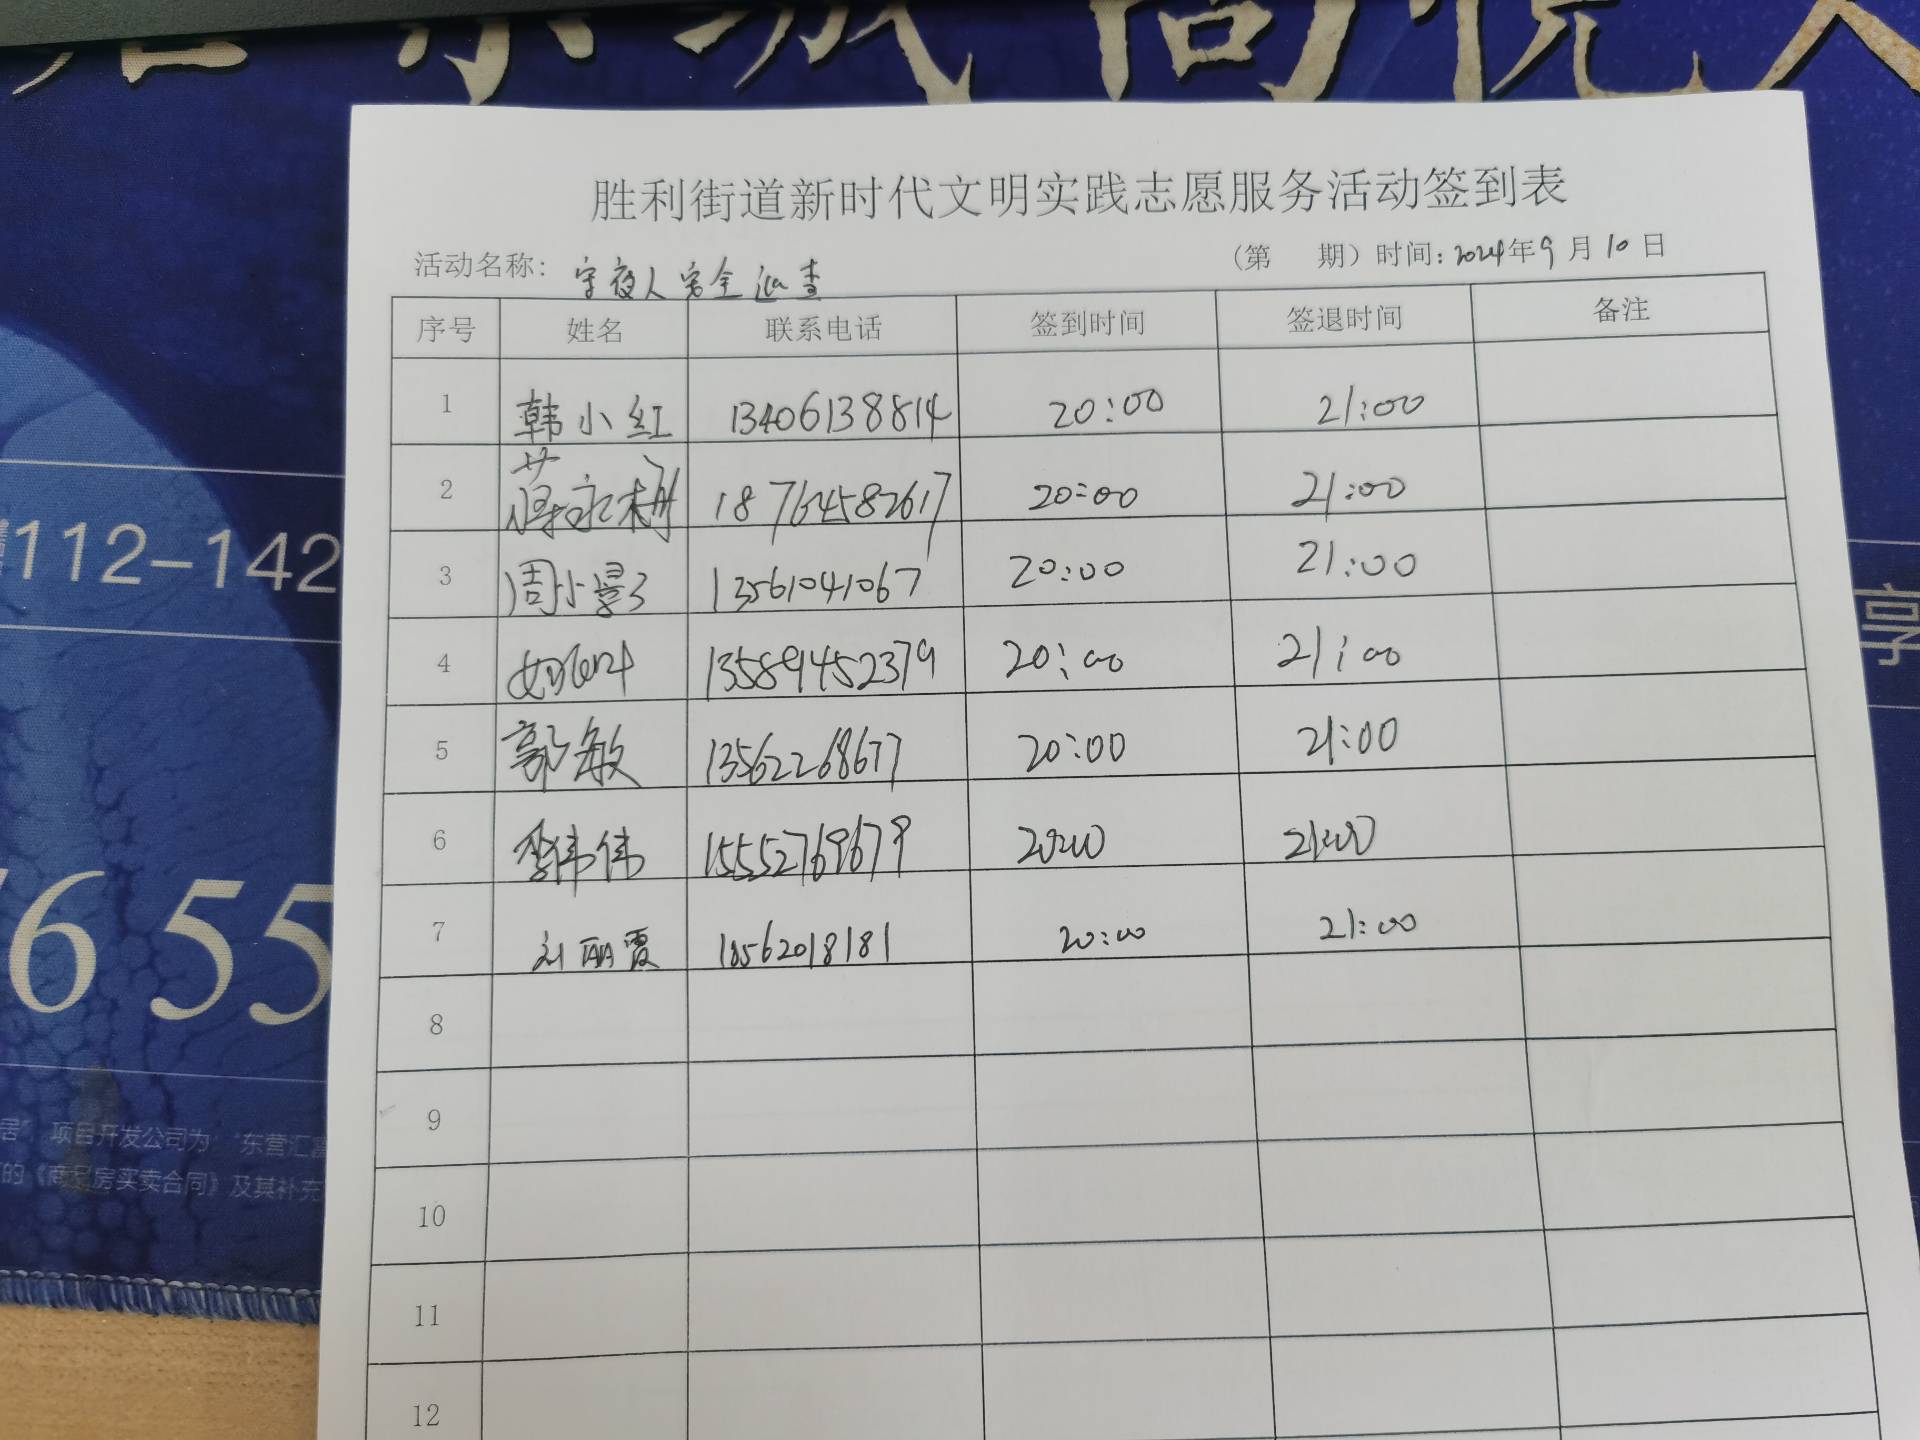 112-142
享
655
居” 项目开发公司为 “东营汇富
的《商品房买卖合同》及其补充
胜利街道新时代文明实践志愿服务活动签到表
活动名称: 守夜人安全巡查 (第 期) 时间: 2024年9月10日
序号 姓名 联系电话 签到时间 签退时间 备注
1 韩小红 13406138814 20:00 21:00
2 18764582617 20:00 21:00
3 周小影 13561041067 20:00 21:00
4 13589452379 20:00 21:00
5 郭敏 13562268677 20:00 21:00
6 李伟伟 15552769679 20:00 21:00
7 刘丽霞 18562018181 20:00 21:00
8
9
10
11
12